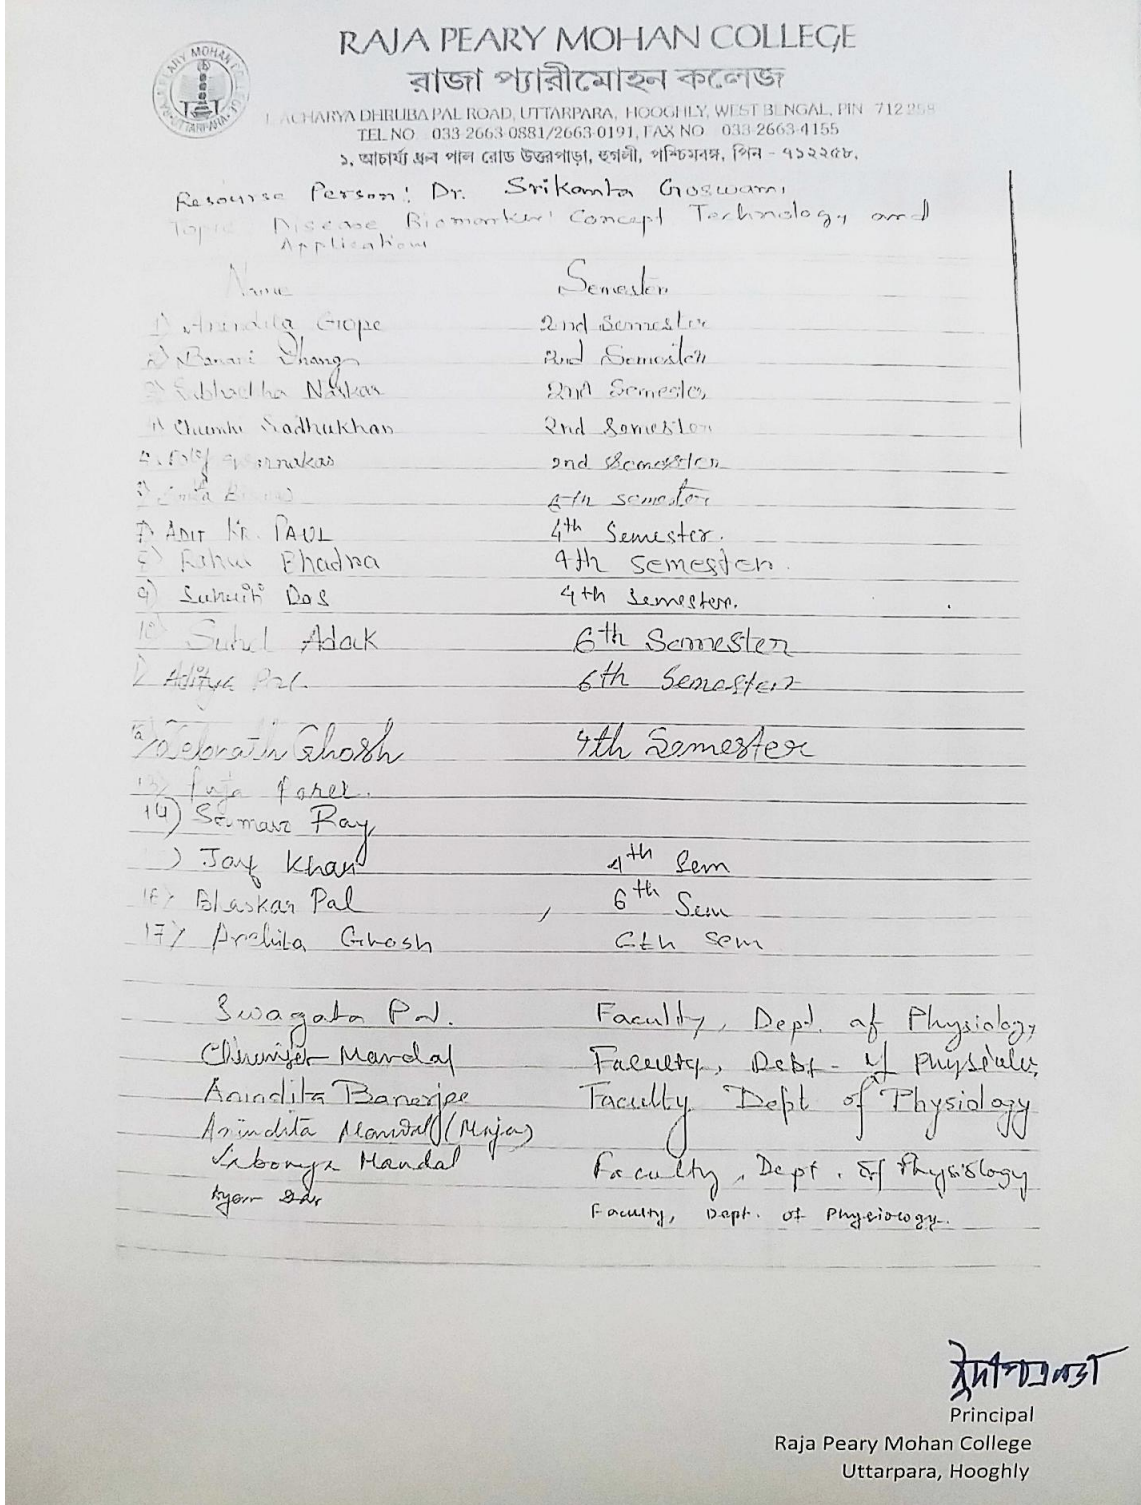 RAJA PEARY MOHAN COLLEGE
রাজা প্যারীমোহন কলেজ
ACHARYA DHRUBA PAL ROAD, UTTARPARA, HOOGHLY, WEST BENGAL, PIN 712258
TEL NO 033-2663-0881/2663-0191, FAX NO 033-2663-4155
১, আচার্য্য ধ্রুব পাল রোড উত্তরপাড়া, হুগলী, পশ্চিমবঙ্গ, পিন - ৭১২২৫৮.
Resourse Person: Dr. Srikanta Goswami
Topic Disease Biomarker: Concept Technology, and
Application
Name Semester
1) Anindita Gope 2nd Semester
2) Banani Dhang 2nd Semester
3) Subhadha Naskar 2nd Semester
4) Chumki Sadhukhan 2nd Semester
2nd Semester
semester
7) ADIT KR. PAUL 4th Semester.
8) Rahul Bhadra 4th Semester.
9) Das 4th Semester.
10) Adak 6th Semester
Aditya Pal. 6th Semester
Debnath Ghosh 4th Semester
13) Puja Porel.
14) Ray
) Khan 4th Sem
16) Bhaskar Pal , 6th Sem
17) Ghosh 6th Sem
Swagata Pal. Faculty, Dept. of Physiology
Mandal Faculty, Dept- of
Anindita Banerjee Faculty Dept of Physiology
Anindita Mandal
Mandal Faculty, Dept. of Physiology
Faculty, Dept. of Physiology.
Principal
Raja Peary Mohan College
Uttarpara, Hooghly